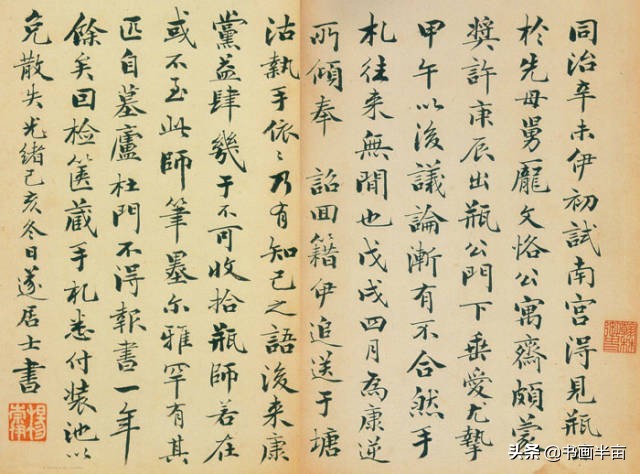 同治辛未伊初試南宮淂見瓶
於先母舅龐文恪公寓齋頗蒙
奬許庚辰出瓶公門下垂愛尤摯
甲午以後議論漸有不合然手
札往来無間也戊戌四月為康逆
所傾奉 詔回籍伊追送于塘
沽執手依〻乃有知己之語後来康
黨益肆幾于不可收拾瓶師若在
或不至此師筆墨尔雅罕有其
匹自墓廬杜門不淂報書一年
餘矣回检篋蔵手札悉付裝池以
免散失光緒己亥冬日遂居士書
头条 @书画半亩